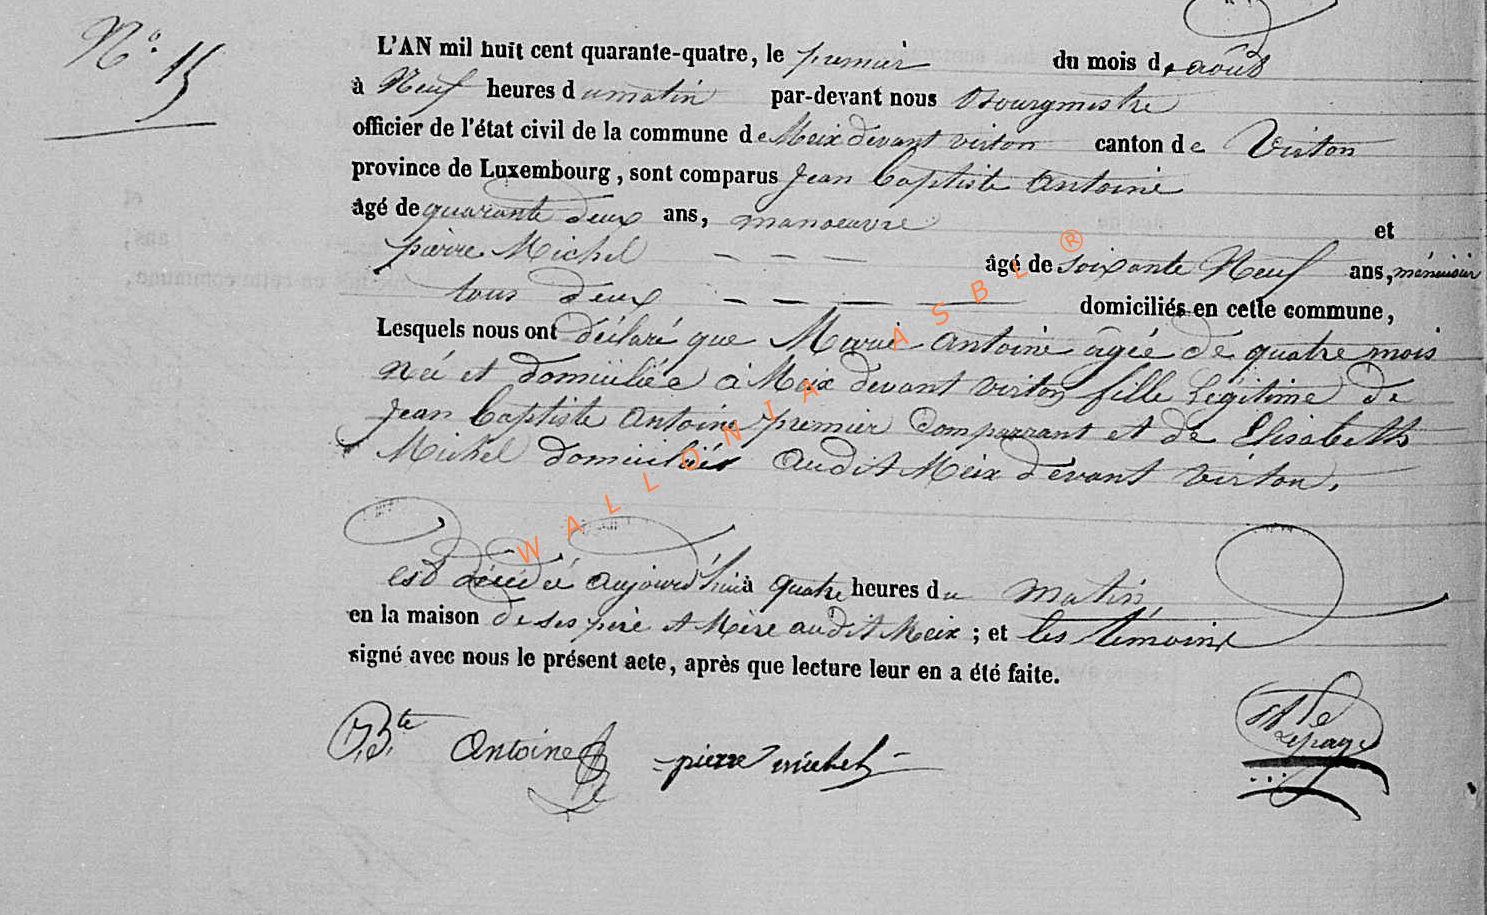 N° 15
L'AN mil huit cent quarante-quatre, le premier du mois d'août
à Neuf heures du matin par-devant nous Bourgmestre
officier de l'état civil de la commune de Meix devant virton canton de Virton
province de Luxembourg, sont comparus Jean Baptiste Antoine
âgé de quarante deux ans, manoeuvre et
pierre Michel — — — âgé de soixante Neuf ans, ménuisier
tous deux — — — — domiciliés en cette commune,
Lesquels nous ont déclaré que Marie Antoine âgée de quatre mois
née et domiciliée à Meix devant virton fille Légitime de
Jean Baptiste Antoine premier Comparrant et de Elisabeth
Michel domiciliés audit Meix devant virton.
est décédée aujourd'huià quatre heures du matin,
en la maison de ses père et Mère audit Meix ; et les témoins
signé avec nous le présent acte, après que lecture leur en a été faite.
J. Bte Antoine pierre michel Lepage
WALLONIA ASBL ®